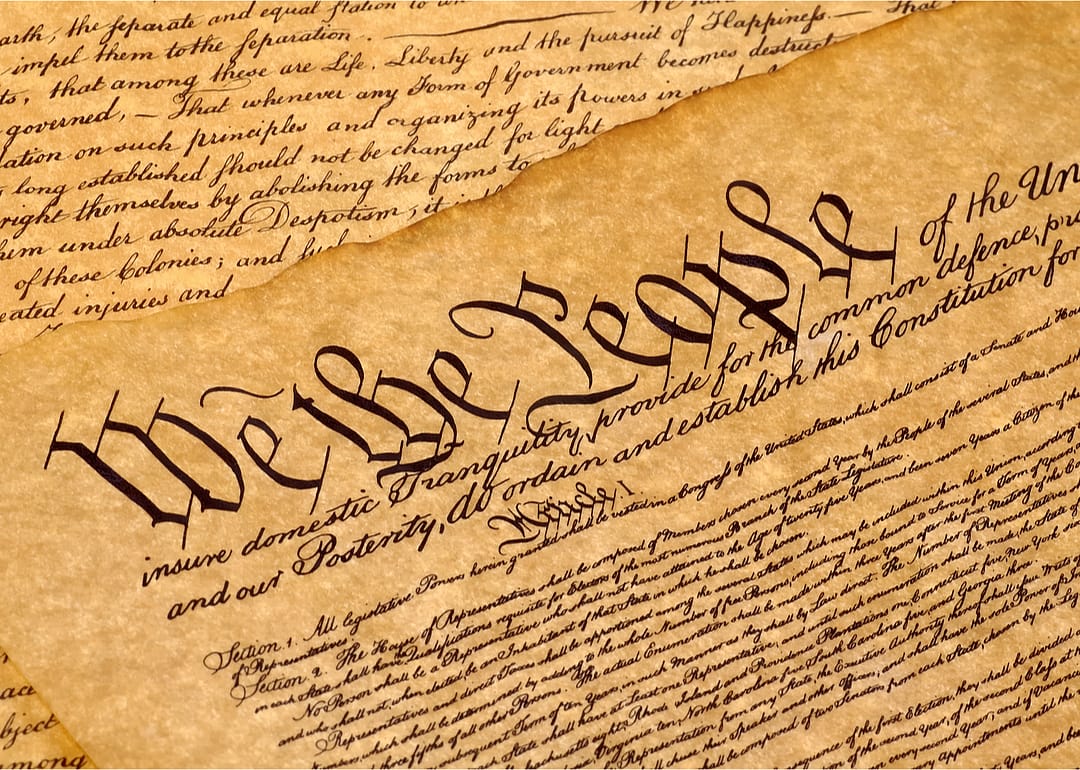 arth, the separate and equal station to
We
impel them to the separation. — That
ts, that among these are Life, Liberty and the pursuit of Happiness. —
governed, — That whenever any Form of Government becomes destruct
ation on such principles and organizing its powers in
long established should not be changed for light
right themselves by abolishing the forms to
hem under absolute Despotism, it is
of these Colonies; and such
eated injuries and
We the People of the Un
insure domestic Tranquility, provide for the common defence, pro
and our Posterity, do ordain and establish this Constitution for
Article. I.
Section. 1. All legislative Powers herein granted shall be vested in a Congress of the United States, which shall consist of a Senate and Hou
of Representatives.
Section. 2. The House of Representatives shall be composed of Members chosen every second Year by the People of the several States, and th
in each State shall have Qualifications requisite for Electors of the most numerous Branch of the State Legislature.
No Person shall be a Representative who shall not have attained to the Age of twenty five Years, and been seven Years a Citizen of the
and who shall not, when elected, be an Inhabitant of that State in which he shall be chosen.
Representatives and direct Taxes shall be apportioned among the several States which may be included within this Union, according
Numbers, which shall be determined by adding to the whole Number of free Persons, including those bound to Service for a Term of Years,
three fifths of all other Persons. The actual Enumeration shall be made within three Years after the first Meeting of the Co
subsequent Term of ten Years, in such Manner as they shall by Law direct. The Number of Representatives
each State shall have at Least one Representative; and until such enumeration shall be made, the State of
eight, Rhode Island and Providence Plantations one, Connecticut five, New York
Virginia ten, North Carolina five, South Carolina five, and Georgia three.
Representation from any State, the Executive Authority thereof shall issue Writs of
chuse their Speaker and other Officers; and shall have the sole Power of
composed of two Senators from each State, chosen by the Leg
sequence of the first Election, they shall be divided
of the second Year, of the second Class at
every second Year; and if Vacanc
Appointments until the
Years, and
bject
among